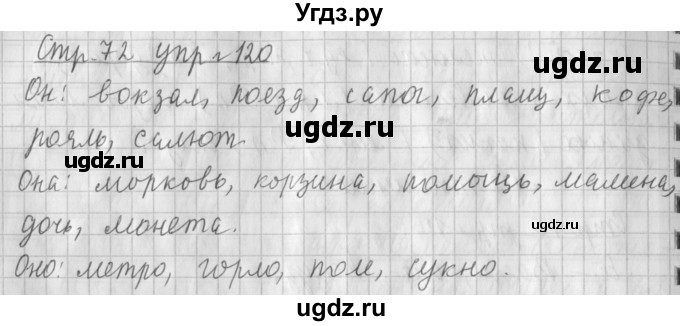 Угдз.ру
Стр. 72 упр. 120
Он: вокзал, поезд, сапог, плащ, кофе,
рояль, салют.
Она: морковь, корзина, помощь, мамена,
дочь, монета.
Оно: метро, горло, поле, сукно.
ugdz.ru
ugdz.ru
ugdz.ru
ugdz.ru
ugdz.ru
ugdz.ru
ugdz.ru